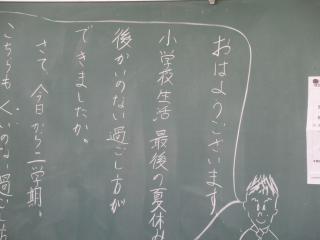 おはようございます
小学校生活 最後の夏休み
後かいのない過ごし方が
できましたか。
さて、今日から一学期。
こちらもくいのない過ごし方